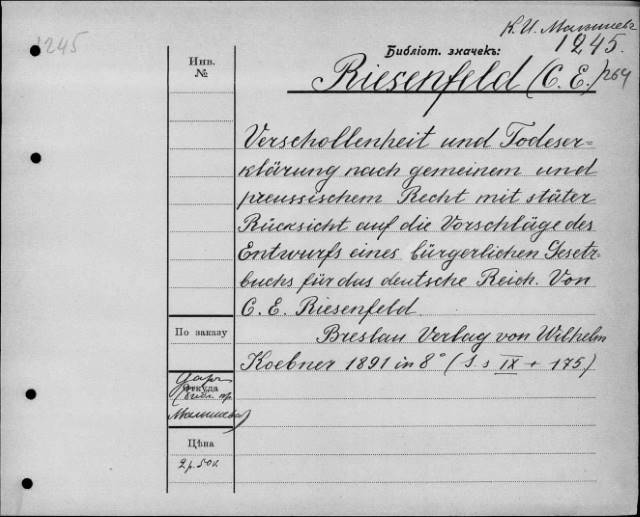 К. И. Малышевъ
1245
Библіот. значекъ:
1245.
Инв.
№
Riesenfeld (C. E.)
264
Verschollenheit und Todeser-
klärung nach gemeinem und
preussischem Recht mit stäter
Rücksicht auf die Vorschläge des
Entwurfs eines bürgerlichen Gesetz-
buchs für das deutsche Reich. Von
C. E. Riesenfeld.
По заказу
Breslau Verlag von Wilhelm
Koebner 1891 in 8° (S.s IX + 175.)
Даръ
Откуда
Малышева)
Цѣна
2 р. 50 к